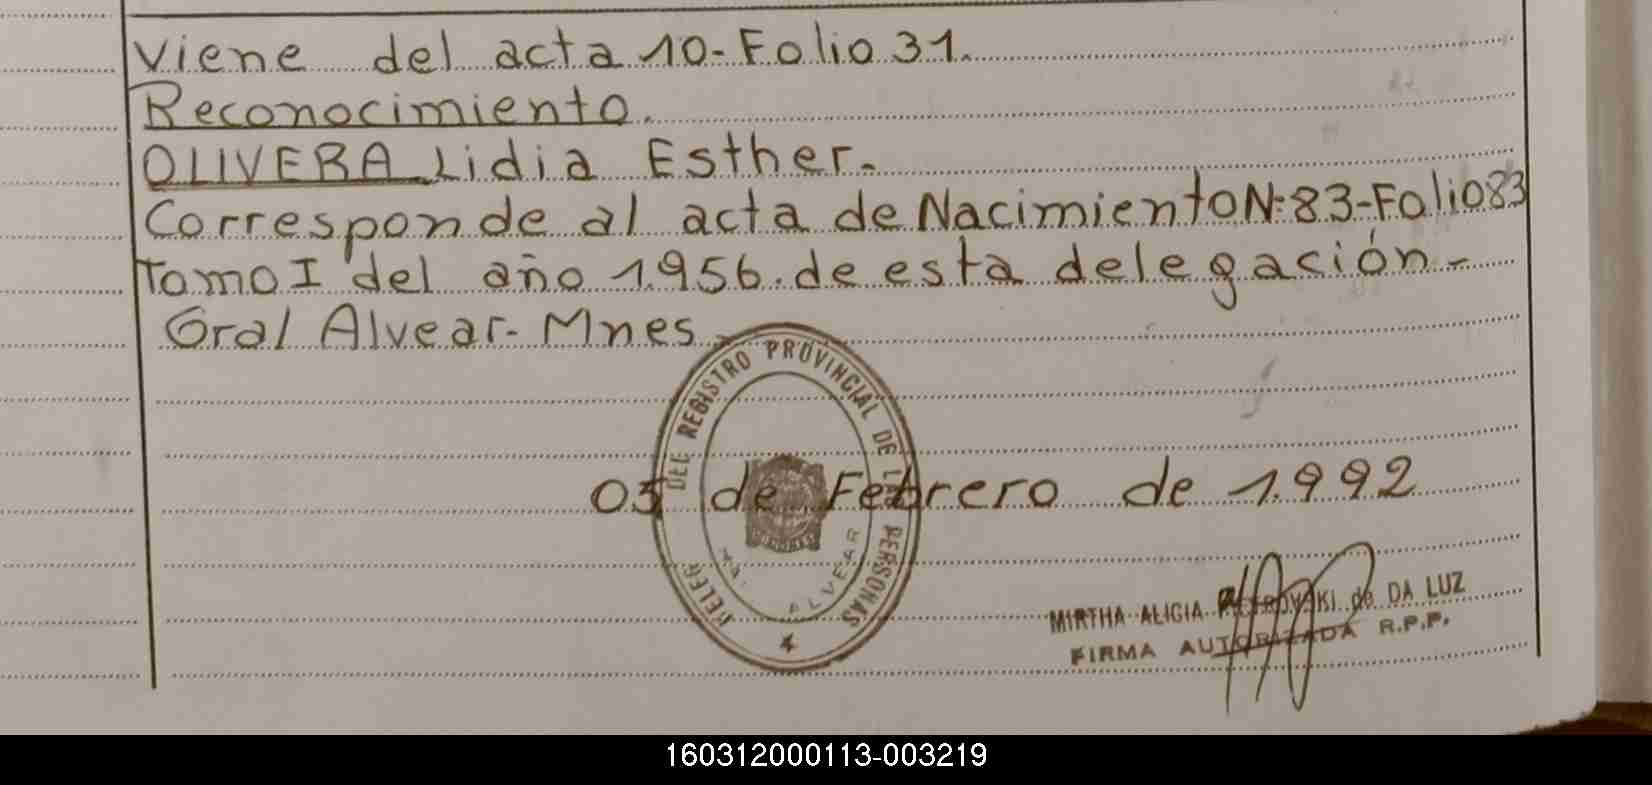 Viene del acta 10-Folio 31.
Reconocimiento.
OLIVERA Lidia Esther.-
Corresponde al acta de Nacimiento Nº 83-Folio 83
Tomo I del año 1.956. de esta delegación-
Gral Alvear-Mnes
DEL REGISTRO PROVINCIAL DE LAS PERSONAS
DELEG
ALVEAR
05 de Febrero de 1.992
MIRTHA ALICIA de DA LUZ
FIRMA AUTORIZADA R.P.P.
160312000113-003219